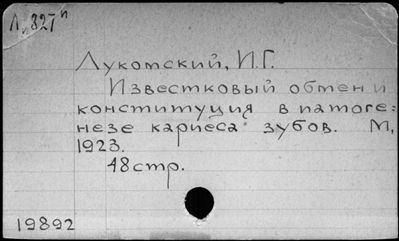 Л„327"
Лукомский, И.Г.
Известковый обмен и
конституция в патоге=
незе кариеса зубов. М,
1923.
48стр.
19892